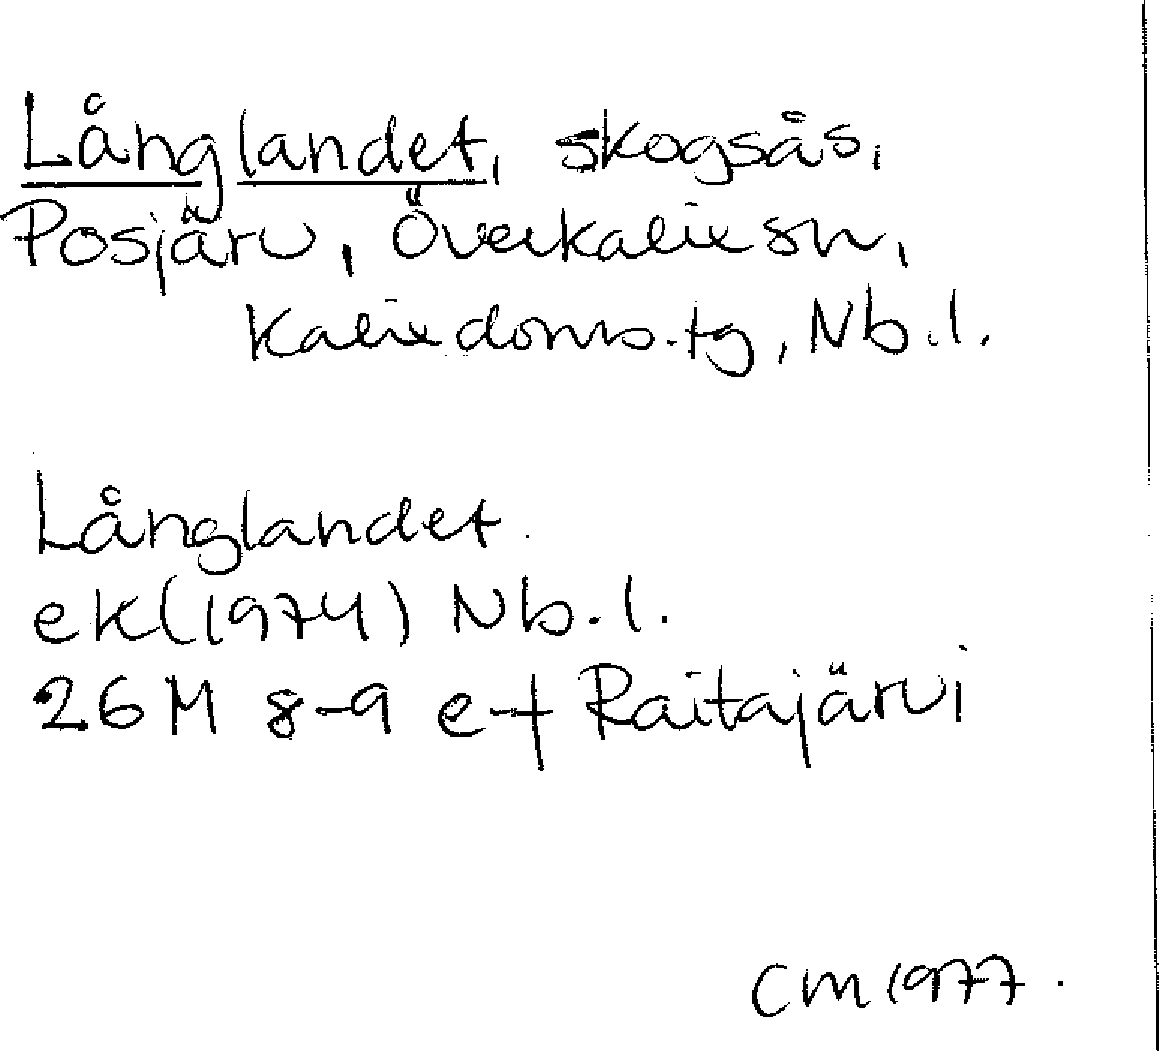 Långlandet, skogsås,
Posjärv, Överkalix sn,
Kalix doms.tg, Nb.l.
Långlandet.
ek(1974) Nb.l.
26M 8-9 e-f Raitajärvi
CM 1977.